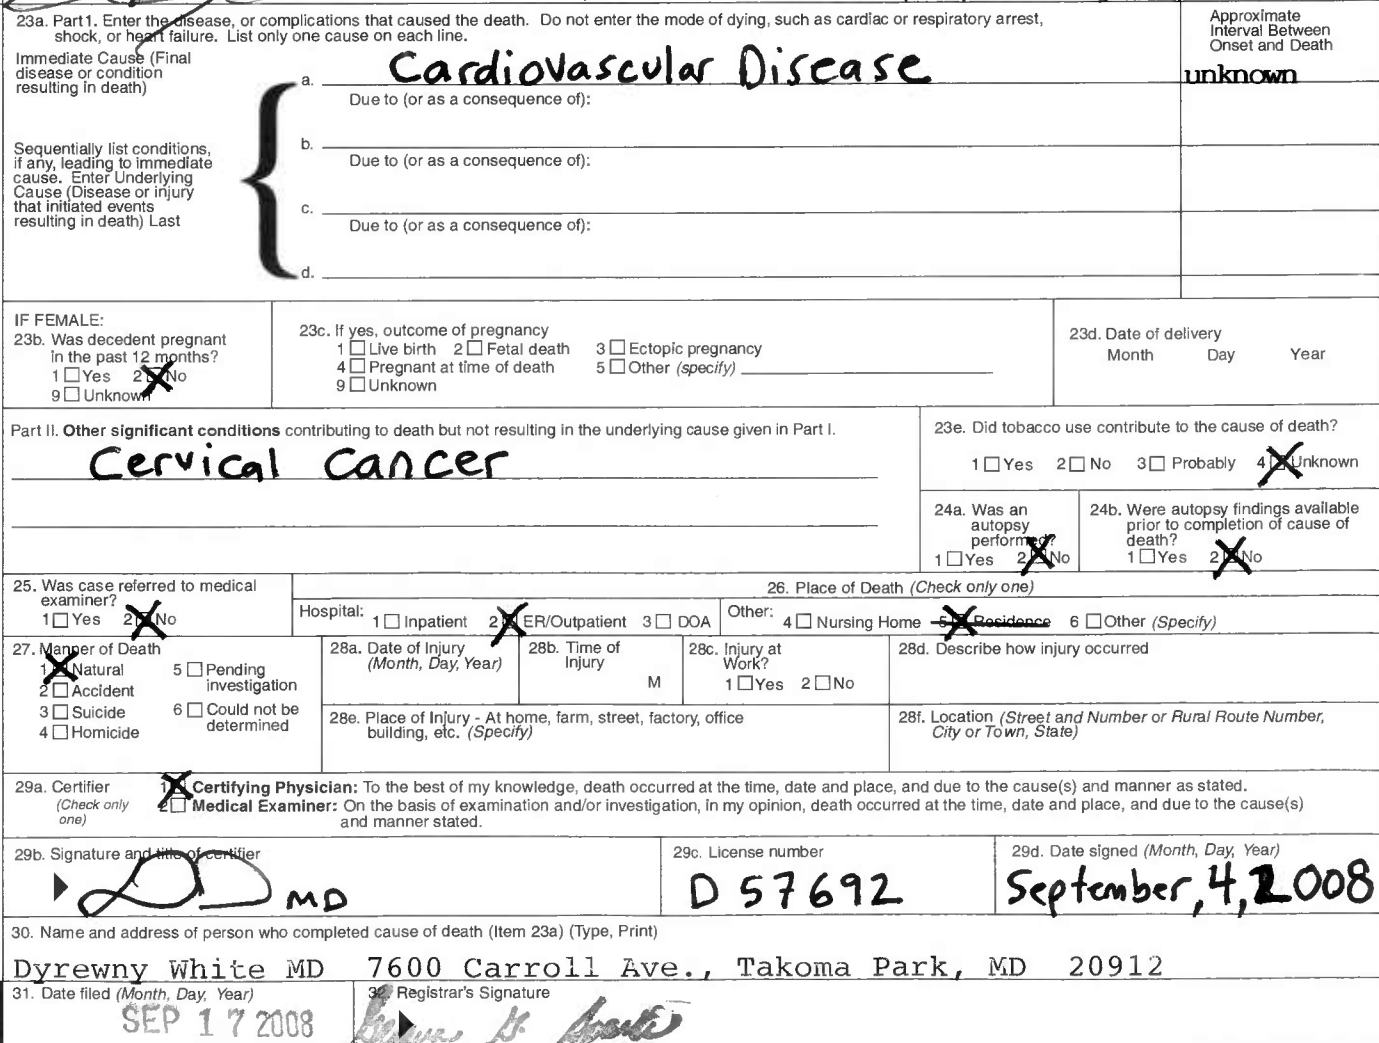 23a. Part1. Enter the disease, or complications that caused the death. Do not enter the mode of dying, such as cardiac or respiratory arrest,
shock, or heart failure. List only one cause on each line.
Approximate
Interval Between
Onset and Death
Immediate Cause (Final
disease or condition
resulting in death)
a. Cardiovascular Disease
unknown
Due to (or as a consequence of):
Sequentially list conditions,
if any, leading to immediate
cause. Enter Underlying
Cause (Disease or injury
that initiated events
resulting in death) Last
b.
Due to (or as a consequence of):
c.
Due to (or as a consequence of):
d.
IF FEMALE:
23b. Was decedent pregnant
in the past 12 months?
1 Yes 2 No
9 Unknown
23c. If yes, outcome of pregnancy
1 Live birth 2 Fetal death 3 Ectopic pregnancy
4 Pregnant at time of death 5 Other (specify)
9 Unknown
23d. Date of delivery
Month Day Year
Part II. Other significant conditions contributing to death but not resulting in the underlying cause given in Part I.
Cervical Cancer
23e. Did tobacco use contribute to the cause of death?
1 Yes 2 No 3 Probably 4 Unknown
24a. Was an
autopsy
performed?
1 Yes 2 No
24b. Were autopsy findings available
prior to completion of cause of
death?
1 Yes 2 No
25. Was case referred to medical
examiner?
1 Yes 2 No
26. Place of Death (Check only one)
Hospital: 1 Inpatient 2 ER/Outpatient 3 DOA Other: 4 Nursing Home 5 Residence 6 Other (Specify)
27. Manner of Death
1 Natural 5 Pending
investigation
2 Accident
3 Suicide 6 Could not be
determined
4 Homicide
28a. Date of Injury
(Month, Day, Year)
28b. Time of
Injury
M
28c. Injury at
Work?
1 Yes 2 No
28d. Describe how injury occurred
28e. Place of Injury - At home, farm, street, factory, office
building, etc. (Specify)
28f. Location (Street and Number or Rural Route Number,
City or Town, State)
29a. Certifier
(Check only
one)
1 Certifying Physician: To the best of my knowledge, death occurred at the time, date and place, and due to the cause(s) and manner as stated.
2 Medical Examiner: On the basis of examination and/or investigation, in my opinion, death occurred at the time, date and place, and due to the cause(s)
and manner stated.
29b. Signature and title of certifier
MD
29c. License number
D 57692
29d. Date signed (Month, Day, Year)
September, 4, 2008
30. Name and address of person who completed cause of death (Item 23a) (Type, Print)
Dyrewny White MD 7600 Carroll Ave., Takoma Park, MD 20912
31. Date filed (Month, Day, Year)
SEP 17 2008
32 Registrar's Signature